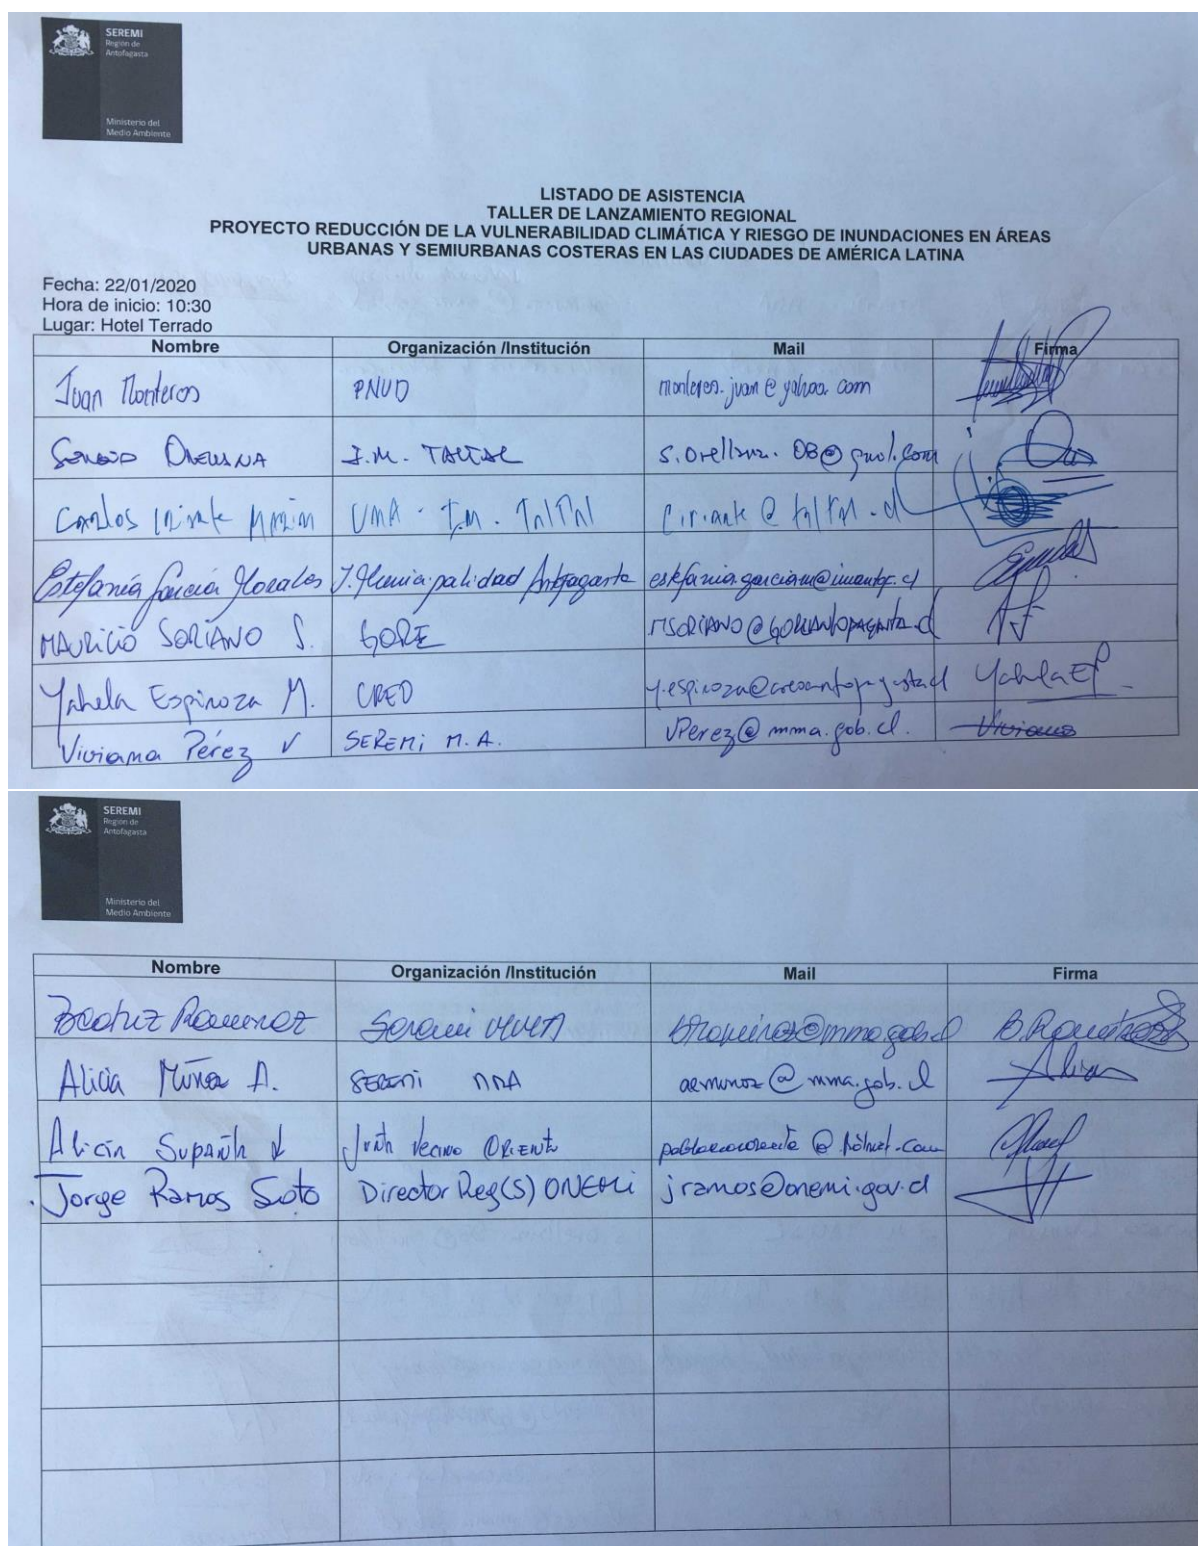 SEREMI
Región de
Antofagasta
Ministerio del
Medio Ambiente
LISTADO DE ASISTENCIA
TALLER DE LANZAMIENTO REGIONAL
PROYECTO REDUCCIÓN DE LA VULNERABILIDAD CLIMÁTICA Y RIESGO DE INUNDACIONES EN ÁREAS
URBANAS Y SEMIURBANAS COSTERAS EN LAS CIUDADES DE AMÉRICA LATINA
Fecha: 22/01/2020
Hora de inicio: 10:30
Lugar: Hotel Terrado
Nombre Organización /Institución Mail Firma
Juan Monteros PNUD monteros.juan@yahoo.com
Sergio Orellana I.M. TALTAL s.orellana.08@gmail.com
Carlos UMA - I.M. Taltal
Estefanía García Morales I. Municipalidad Antofagasta
MAURICIO SORIANO S. GORE MSORIANO@GOREANTOFAGASTA.cl
Yahela Espinoza M. CRED Yahela EP
Viviana Pérez V SEREMi M.A. vPerez@mma.gob.cl. Viviana
SEREMI
Región de
Antofagasta
Ministerio del
Medio Ambiente
Nombre Organización /Institución Mail Firma
Beatriz Ramirez Seremi MMA bramirez@mma.gob.cl B.Ramirez
Alicia Muñoz A. SEREMi MMA aemunoz@mma.gob.cl Alicia
Alicia Junta Vecino ORIENTE
Jorge Ramos Soto Director Reg(S) ONEMi jramos@onemi.gov.cl